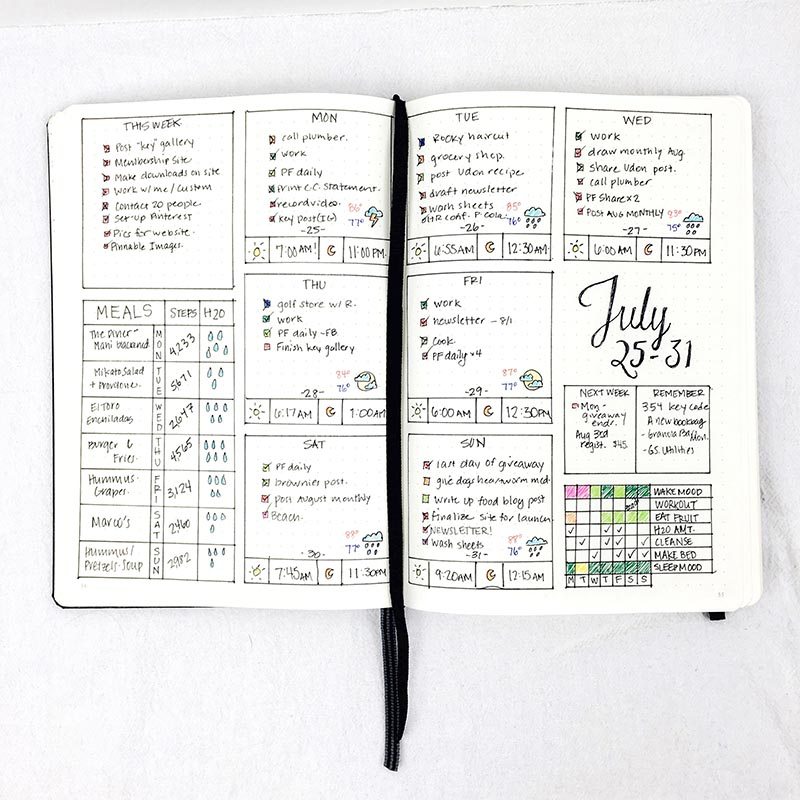 THIS WEEK
Post "key" gallery
Membership site
Make downloads on site
Work w/me / Custom
Contact 20 people.
Set-up Pinterest
Pics for website.
Pinnable Images.
MEALS STEPS H20
The Diner -
MON
4233
Mikato Salad
+ Provolones.
TUE
5,671
El Toro
Enchiladas
WED
2,647
Burger &
Fries.
THU
4,565
Hummus
Grapes.
FRI
3,124
Marco's
SAT
2460
Hummus/
Pretzels-Soup
SUN
2982
MON
call plumber.
work
PF daily
Print C.C. Statement.
record video.
key post (IG)
86°
77°
-25-
7:00 AM! 11:00 PM
THU
golf store w/ R.
work
PF daily -FB
Finish key gallery
84°
76°
-28-
6:17 AM 1:00 AM
SAT
PF daily
brownies post.
post August monthly
Beach.
88°
77°
-30-
7:45 AM 11:30 PM
TUE
Rocky haircut
grocery shop.
post Udon recipe
draft newsletter
Wash sheets
85°
76°
-26-
6:55 AM 12:30 AM
WED
work
draw monthly Aug.
share Udon post.
call plumber
PF Share x 2
Post AUG MONTHLY
93°
75°
-27-
6:00 AM 11:30 PM
FRI
work
newsletter - 8/1
Cook.
PF daily x4
87°
77°
-29-
6:00 AM 12:30 PM
July
25-31
NEXT WEEK
Mon -
giveaway
ends.
Aug 3rd
regist. $45.
REMEMBER
354 key code
A new bookbag
- Granola Bar Mon.
- GS. Utilities
SUN
last day of giveaway
give dogs heartworm med.
Write up food blog post
Finalize site for launch
NEWSLETTER!
Wash sheets
88°
76°
-31-
9:20 AM 12:15 AM
WAKE MOOD
WORKOUT
EAT FRUIT
H20 AMT.
CLEANSE
MAKE BED
SLEEP MOOD
M T W T F S S